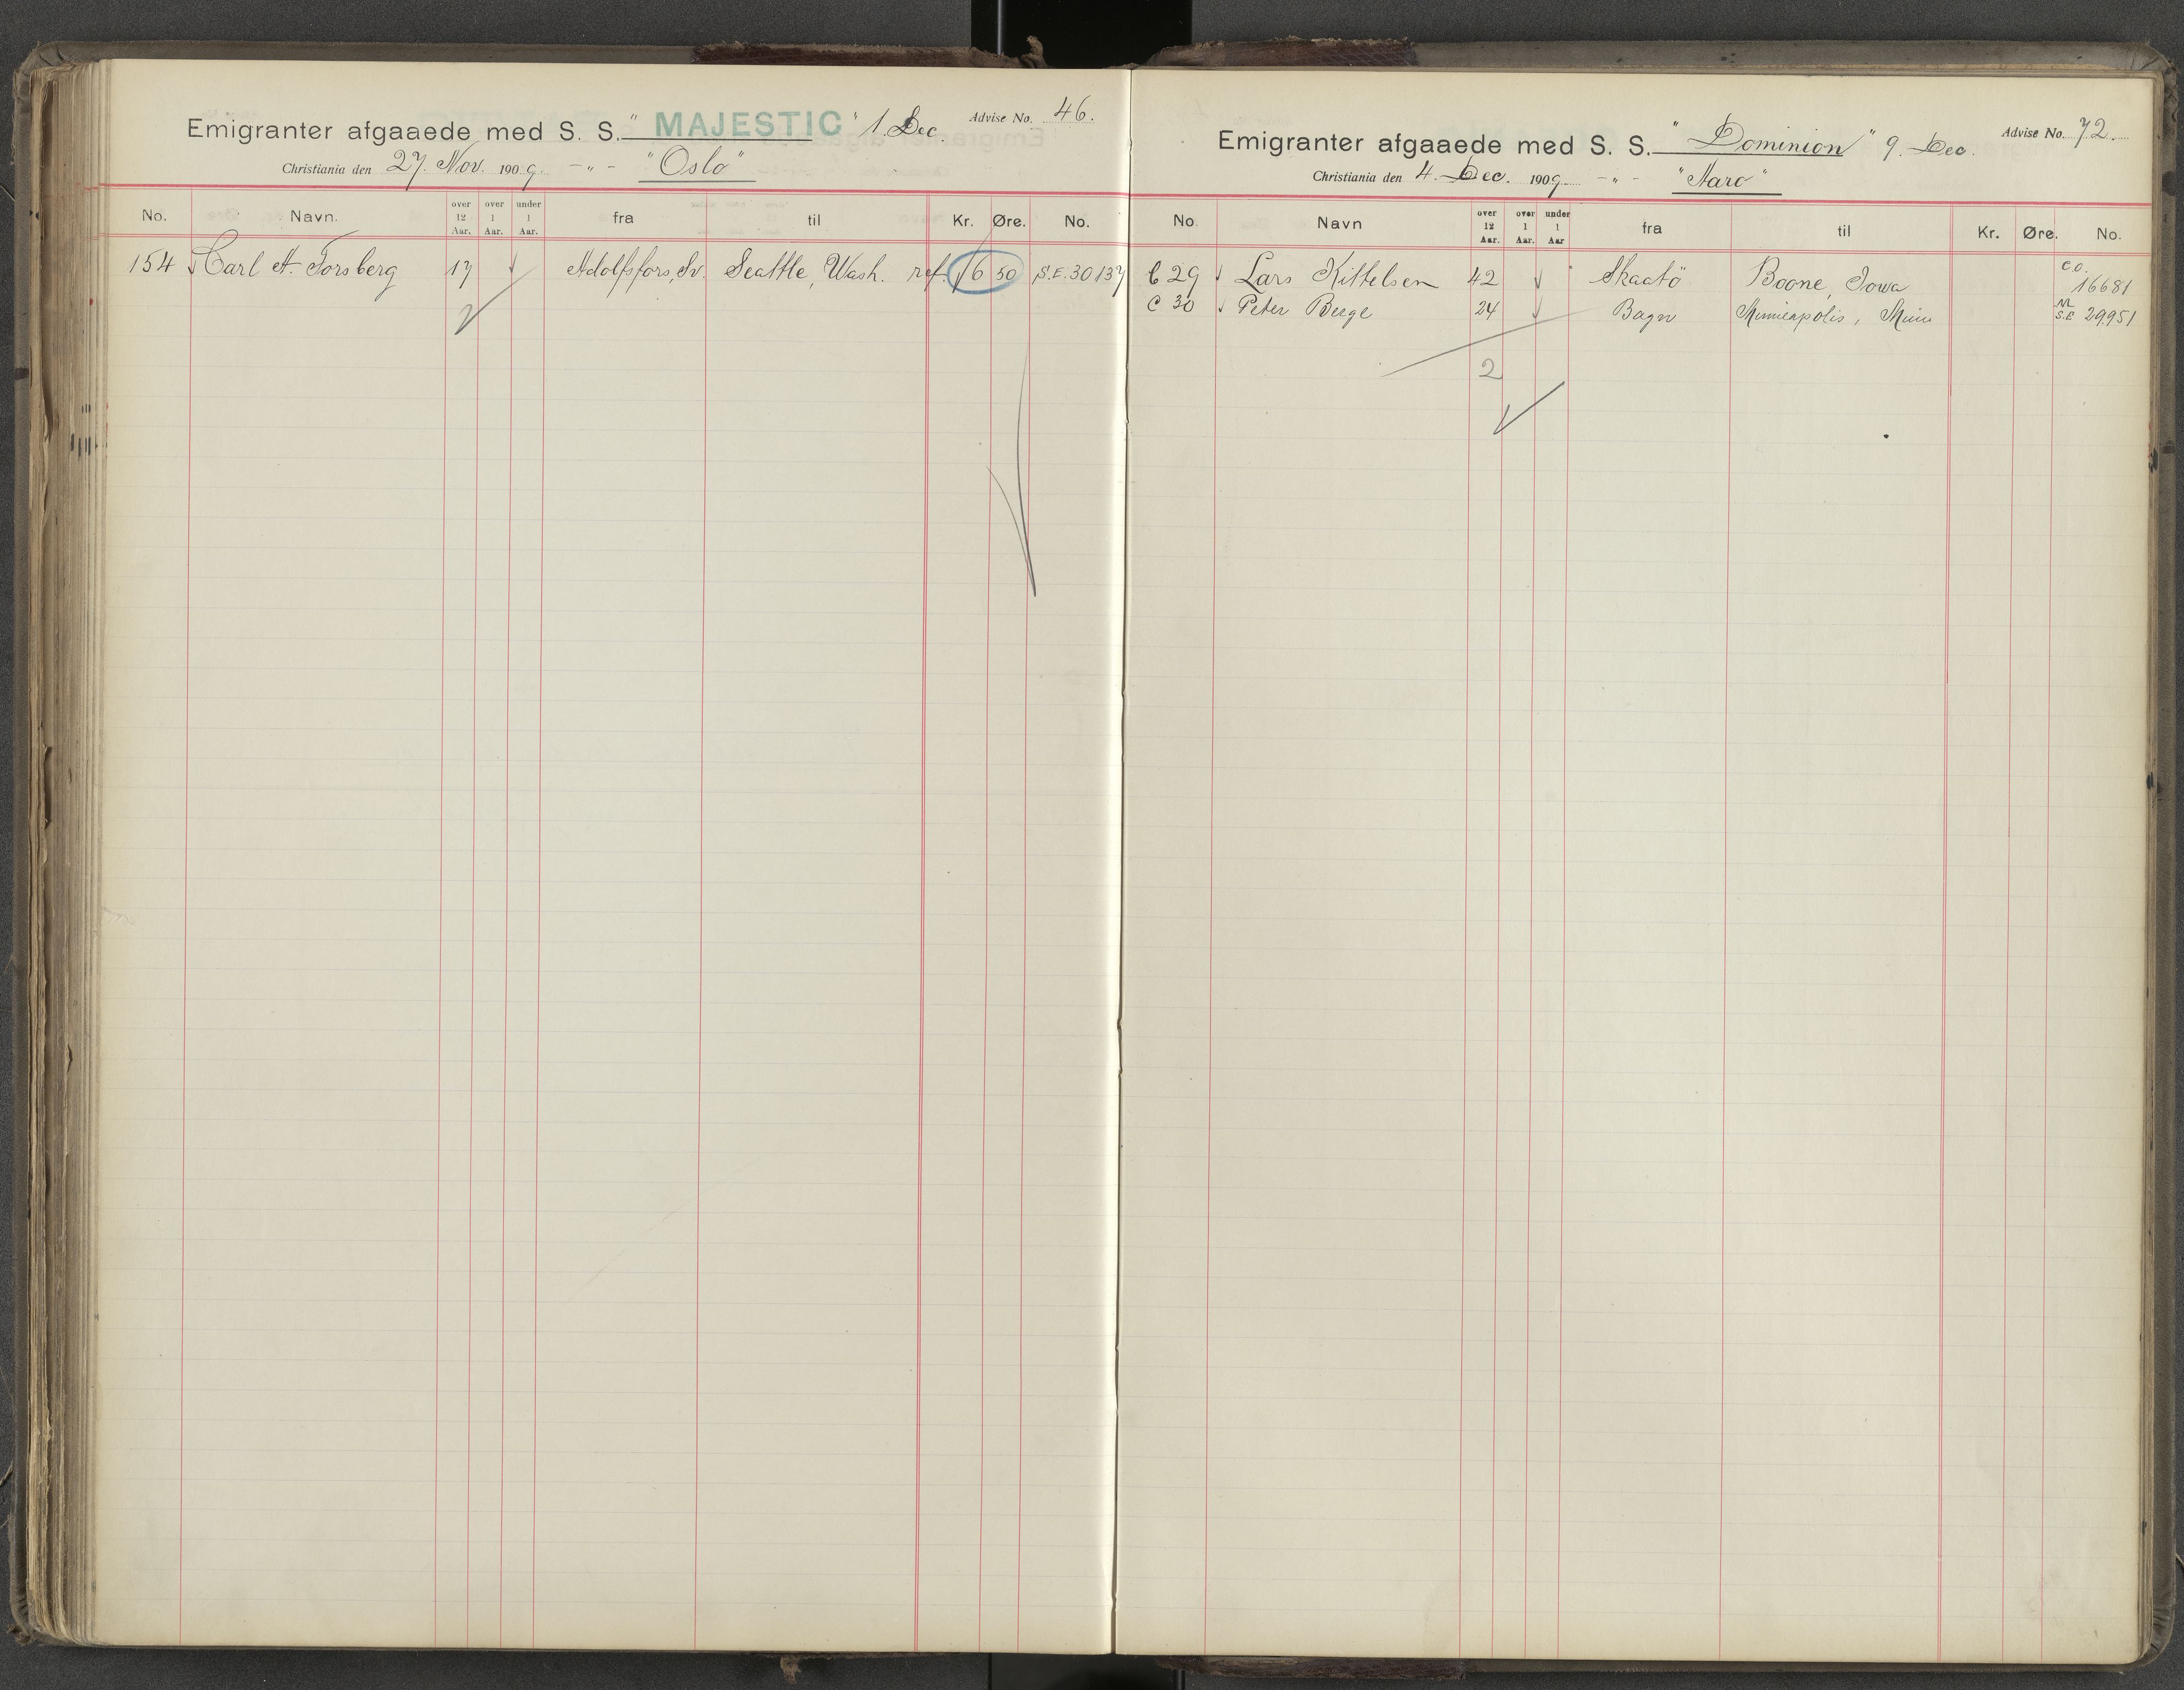 Emigranter afgaaede med S. S. "MAJESTIC" 1. Dec. Advise No. 46.
Christiania den 27. Nov. 1909. -"- "Oslo"
No. Navn. over 12 Aar. over 1 Aar. under 1 Aar. fra til Kr. Øre. No.
154 Carl A. Forsberg 17 Adolfsfors, Sv. Seattle, Wash. ref. 16 50 S.E. 30137
Emigranter afgaaede med S. S. "Dominion" 9. Dec. Advise No. 72.
Christiania den 4. Dec. 1909 -"- "Aaro"
No. Navn over 12 Aar. over 1 Aar. under 1 Aar fra til Kr. Øre. No.
C 29 Lars Kittelsen 42 Skaatö Boone, Iowa C.O. 16681
C 30 Peter Berge 24 Bagn Minneapolis, Minn S.E 29951
2